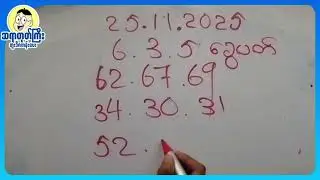 ဆရာတုတ်ကြီး
25.11.2025
6.3.5 ခွေပတ်
62.67.69
34.30.31
52.